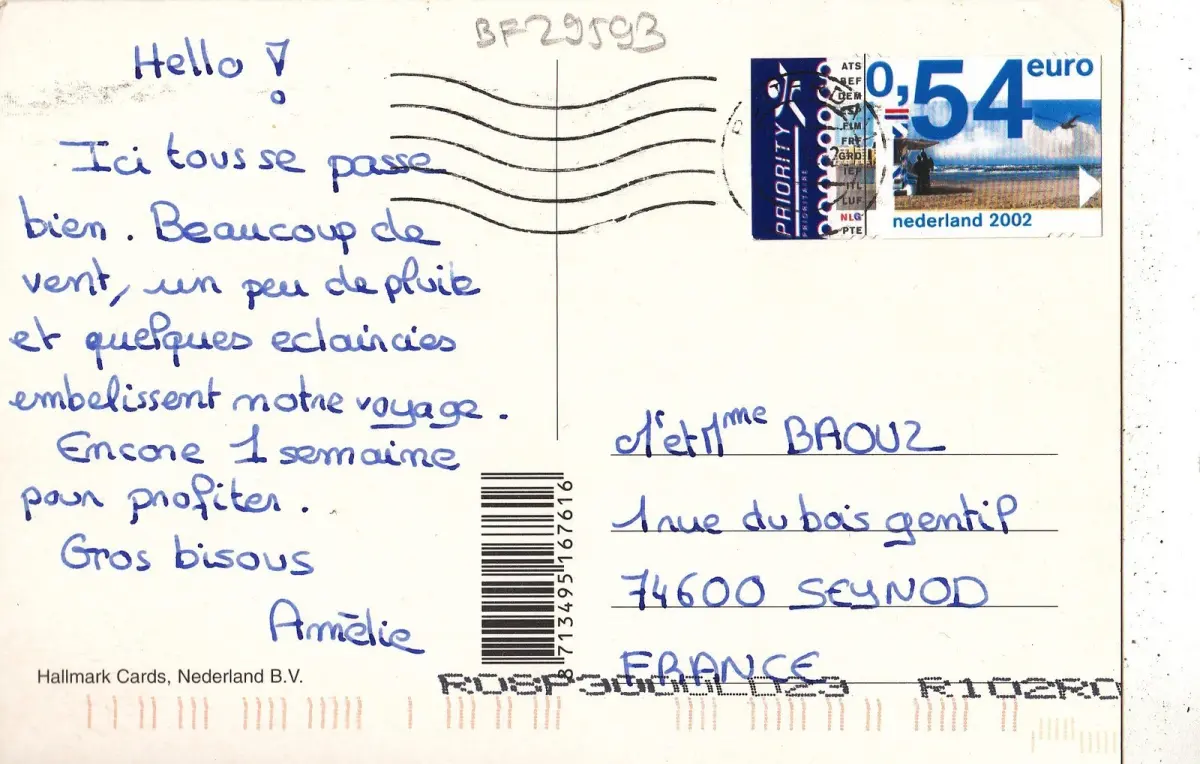 BF29593
Hello !
Ici tous se passe
bien. Beaucoup de
vent, un peu de pluie
et quelques eclaircies
embelissent notre voyage.
Encore 1 semaine
pour profiter.
Gros bisous
Amélie
Hallmark Cards, Nederland B.V.
8713495167616
PRIORITY
PRIORITAIRE
ATS
BEF
DEM
ESP
FIM
FRF
GRD
IEP
ITL
LUF
NLG
PTE
0,54 euro
nederland 2002
Mr et Mme BAOUZ
1 rue du bois gentil
74600 SEYNOD
FRANCE